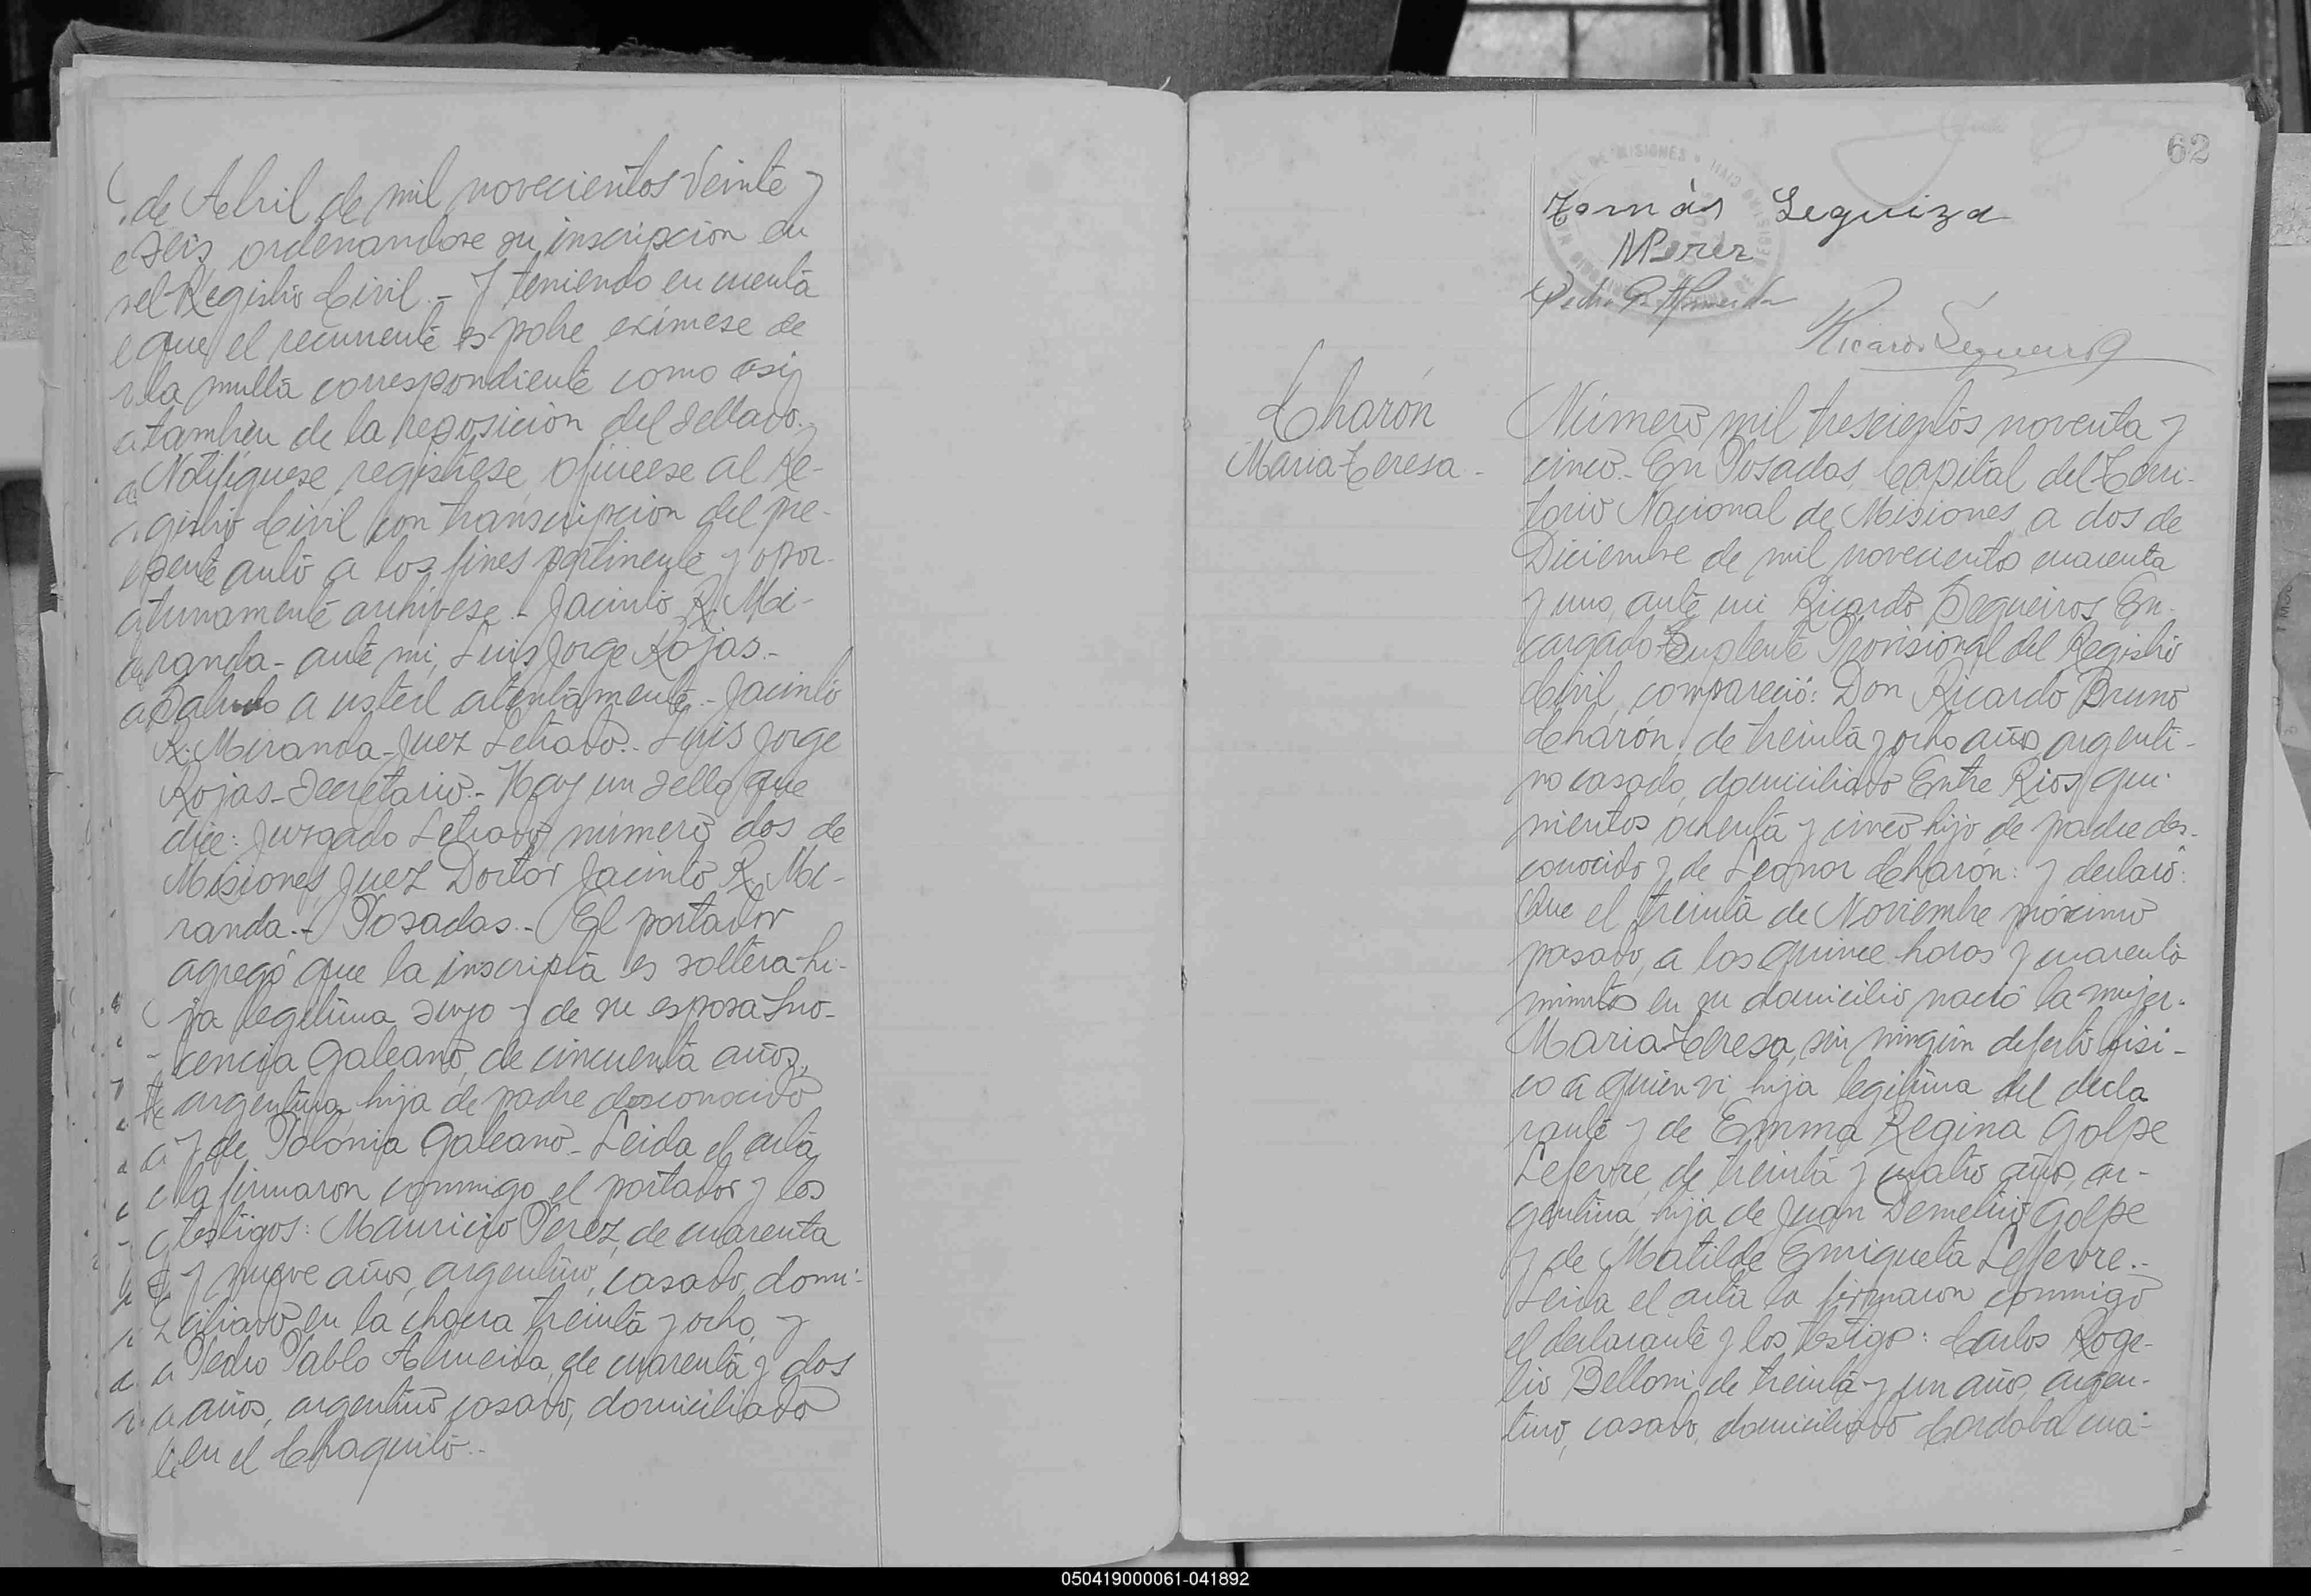 de Abril de mil novecientos veinte y
seis, ordenandose su inscripcion en
el Registro Civil.- Y teniendo en cuenta
que el recurrente es pobre eximese de
la multa correspondiente como asi
tambien de la reposicion del sellado.
Notifiquese, registrese, oficiese al Re-
gistro Civil con transcripcion del pre-
sente auto a los fines pertinente y opor-
tunamente archivese.- Jacinto R. Mi-
randa- ante mi, Luis Jorge Rojas.-
Saludo a usted atentamente.- Jacinto
R. Miranda- Juez Letrado.- Luis Jorge
Rojas- Secretario.- Hay un sello que
dice: Juzgado Letrado número dos de
Misiones, Juez Doctor Jacinto R. Mi-
randa.- Posadas.- El portador
agregó que la inscripta es soltera hi-
ja legitima suya y de su esposa Ino-
cencia Galeano, de cincuenta años,
argentina, hija de padre desconocido
y de Polonia Galeano- Leida el acta
la firmaron conmigo el portador y los
testigos: Mauricio Perez, de cuarenta
y nueve años, argentino, casado, domi-
ciliado en la chacra treinta y ocho, y
Pedro Pablo Almeida, de cuarenta y dos
años, argentino casado, domiciliado
en el Chaquito.-
62
Tomás Leguiza
MPerez
Pedro P. Almeida
Ricardo Sequeiros
Charón
Maria Teresa.-
Número mil trescientos noventa y
cinco.- En Posadas, Capital del Terri-
torio Nacional de Misiones, a dos de
Diciembre de mil novecientos cuarenta
y uno, ante mi Ricardo Sequeiros En-
cargado Suplente Provisional del Registro
Civil, compareció: Don Ricardo Bruno
Charón, de treinta y ocho años, argenti-
no casado, domiciliado Entre Rios qui-
nientos ochenta y cinco, hijo de padre des-
conocido y de Leonor Charón: y declaró:
Que el treinta de Noviembre próximo
pasado, a las quince horas y cuarenta
minutos en su domicilio nació la mujer.
Maria Teresa, sin ningún defecto fisi-
co a quien vi, hija legitima del decla
rante y de Emma Regina Golpe
Lefevre, de treinta y cuatro años, ar-
gentina, hija de Juan Demetrio Golpe
y de Matilde Enriqueta Lefevre.-
Leida el acta la firmaron conmigo
el declarante y los testigo: Carlos Roge-
lio Belloni, de treinta y un años, argen-
tino, casado, domiciliado Cordoba cua-
050419000061-041892